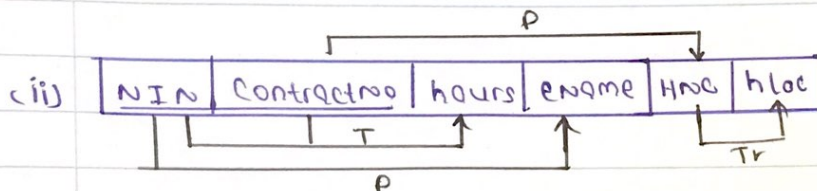 P
(ii) NIN contractNo hours eName HNO hloc
T
Tr
P